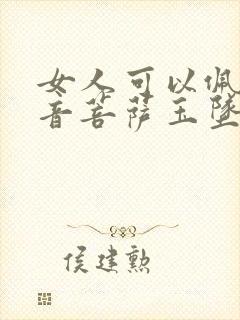 女人可以佩
音菩萨玉坠
侯建勲